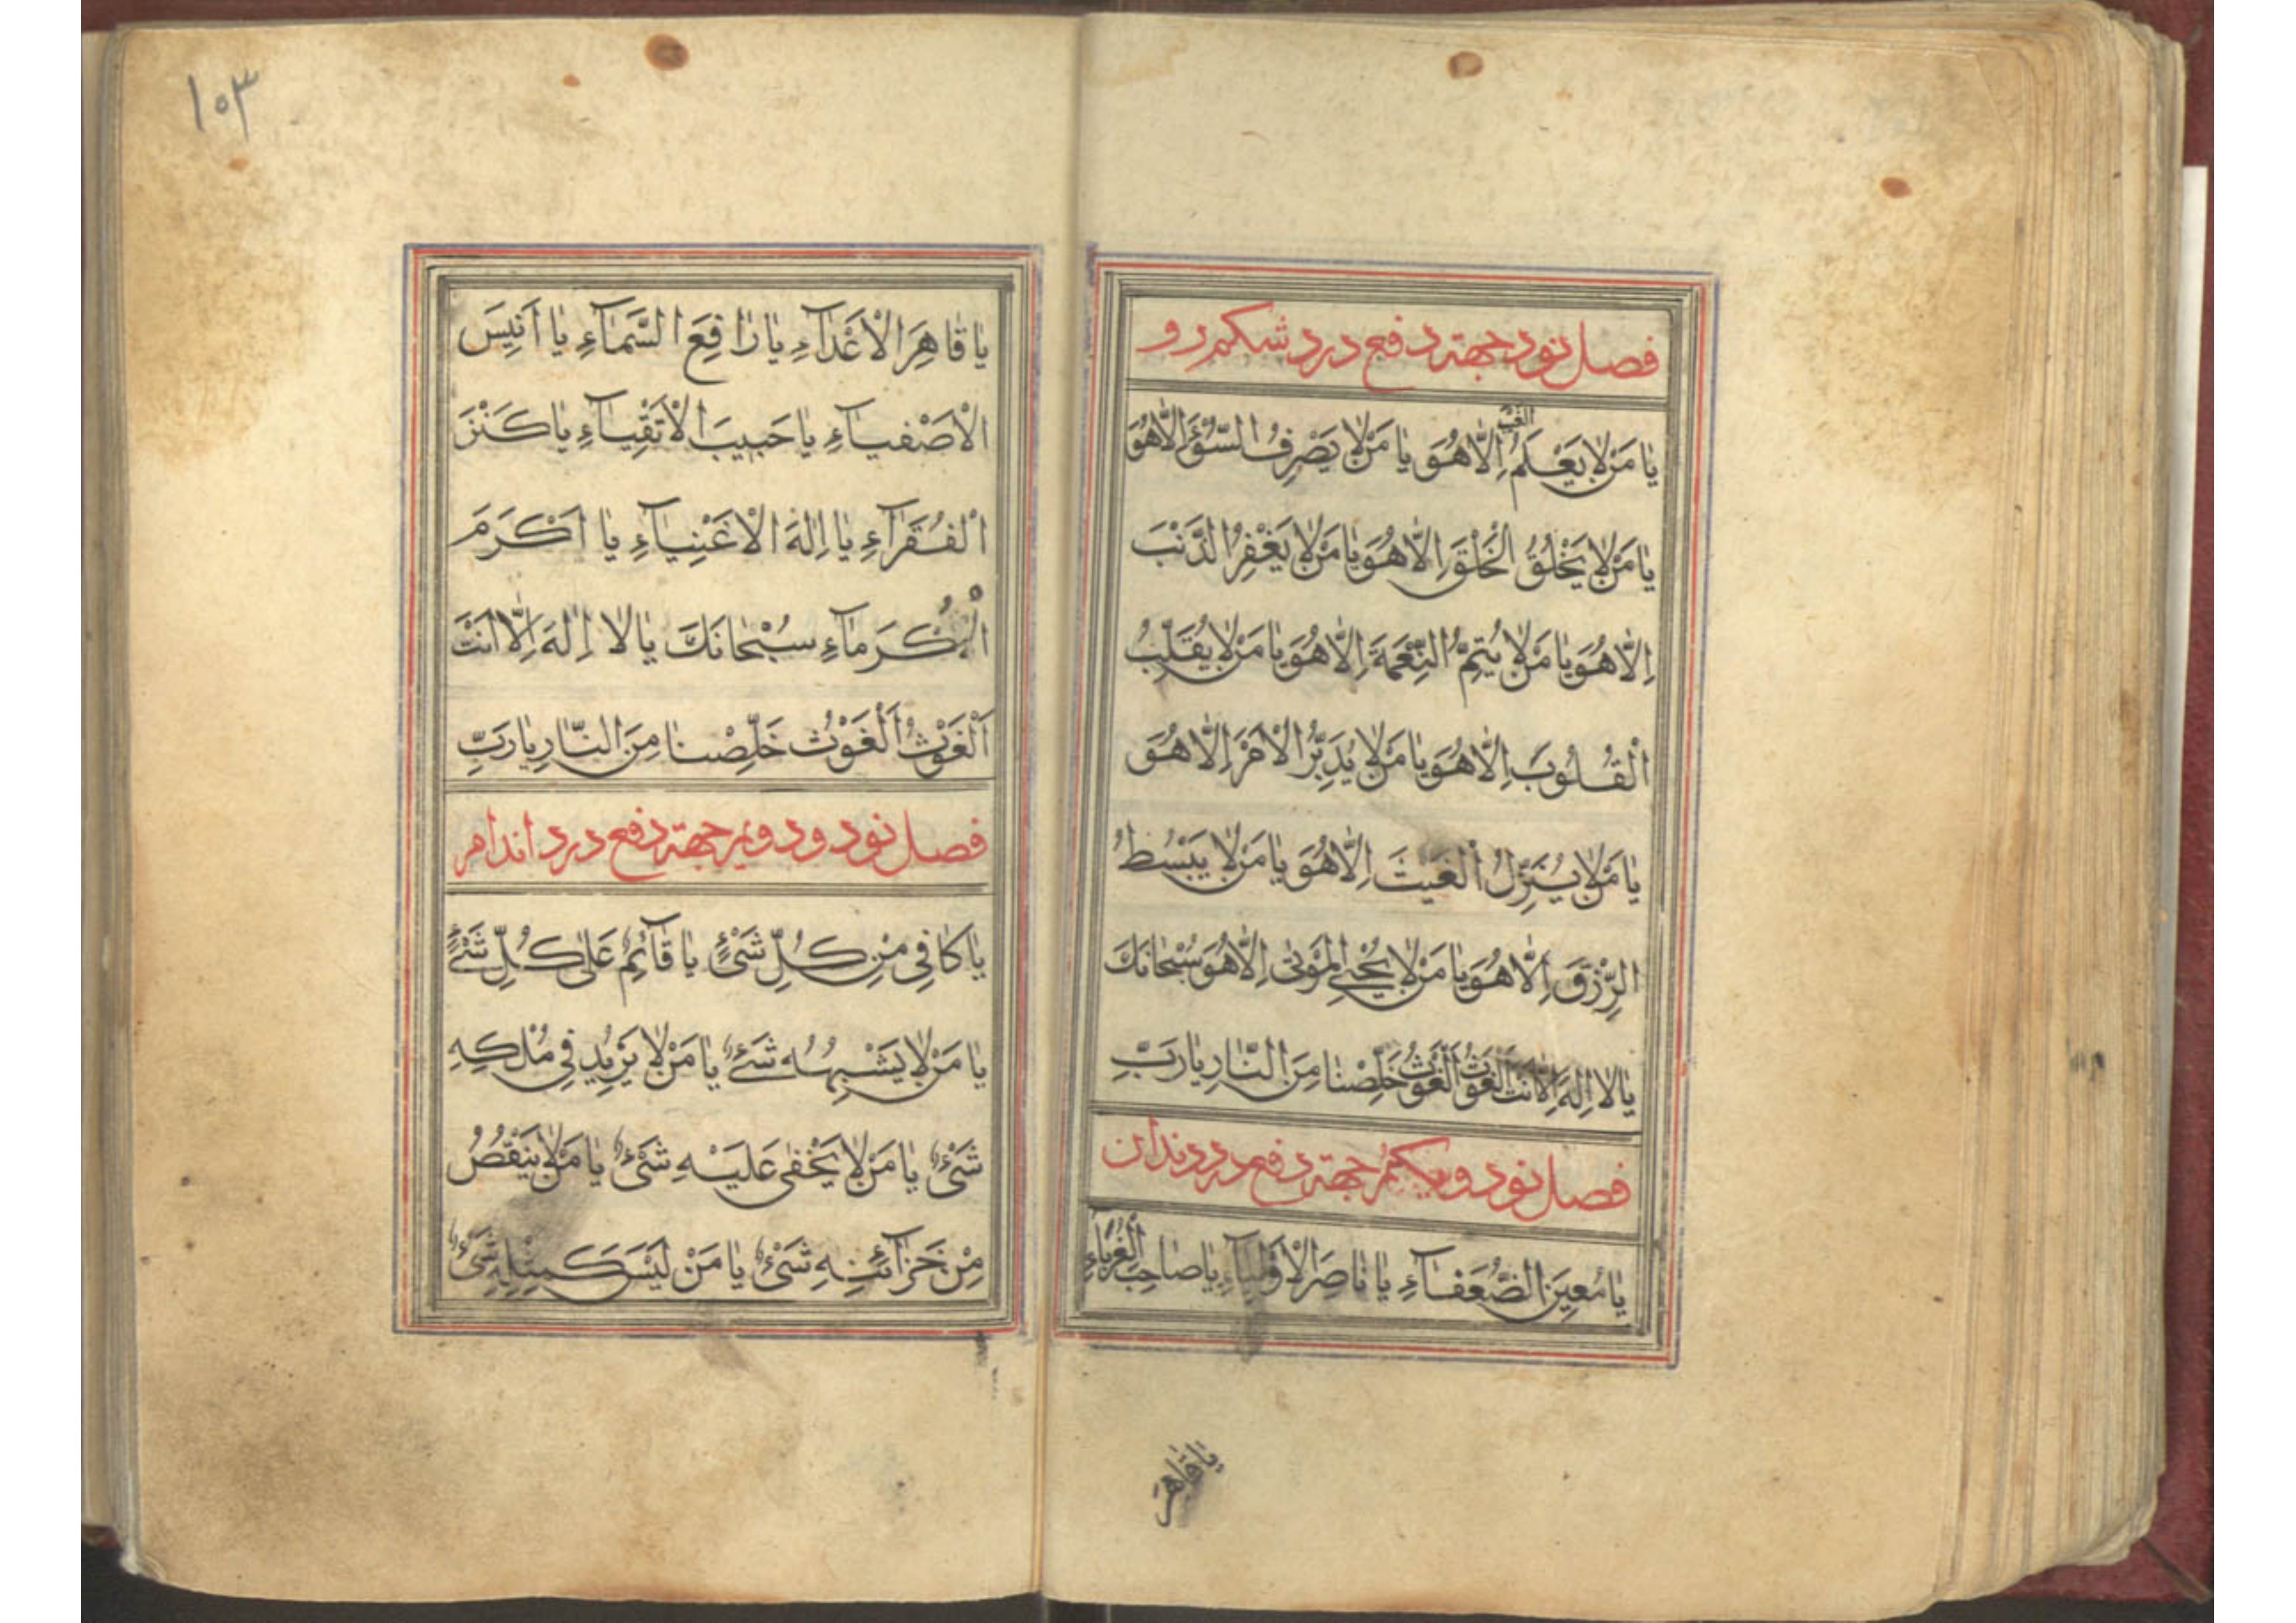 فصل نود جهته دفع درد شکم رو
یا مَنْ لا یَعْلَمُ الغَیْبَ اِلّا هُوَ یا مَنْ لا یَصْرِفُ السّوُءَ اِلّا هُوَ
یا مَنْ لا یَخْلُقُ الْخَلْقَ اِلّا هُوَ یا مَنْ لا یَغْفِرُ الذَّنْبَ
اِلّا هُوَ یا مَنْ لا یُتِمُّ النِّعْمَةَ اِلّا هُوَ یا مَنْ لا یُقَلِّبُ
الْقُلُوبَ اِلّا هُوَ یا مَنْ لا یُدَبِّرُ الْاَمْرَ اِلّا هُوَ
یا مَنْ لا یُنَزِّلُ الْغَیْثَ اِلّا هُوَ یا مَنْ لا یَبْسُطُ
الرِّزْقَ اِلّا هُوَ یا مَنْ لا یُحْیِی الْمَوْتٰی اِلّا هُوَ سُبْحانَكَ
یا لا اِلٰهَ اِلّا اَنْتَ اَلْغَوْثُ اَلْغَوْثُ خَلِّصْنا مِنَ النّارِ یا رَبِّ
فصل نود و یکم جهته دفع درد دندان
یا مُعینَ الضُّعَفآءِ یا ناصِرَ الْاَوْلِیآءِ یا صاحِبَ الْغُرَبآءِ
یا قاهر
۱۰۳
یا قاهِرَ الْاَعْدآءِ یا رافِعَ السَّمآءِ یا اَنیسَ
الْاَصْفیآءِ یا حَبیبَ الْاَتْقِیآءِ یا كَنْزَ
الْفُقَرآءِ یا اِلٰهَ الْاَغْنِیآءِ یا اَكْرَمَ
الْكُرَمآءِ سُبْحانَكَ یا لا اِلٰهَ اِلّا اَنْتَ
اَلْغَوْثُ اَلْغَوْثُ خَلِّصْنا مِنَ النّارِ یا رَبِّ
فصل نود و دویم جهته دفع درد اندام
یا كافِی مِنْ كُلِّ شَیْءٍ یا قآئِمُ عَلٰی كُلِّ شَیْءٍ
یا مَنْ لا یَشْبِهُهُ شَیْءٌ یا مَنْ لا یَزیدُ فی مُلْكِهِ
شَیْءٌ یا مَنْ لا یَخْفٰی عَلَیْهِ شَیْءٌ یا مَنْ لا یَنْقُصُ
مِنْ خَزآئِنِهِ شَیْءٌ یا مَنْ لَیْسَ كَمِثْلِهِ شَیْءٌ